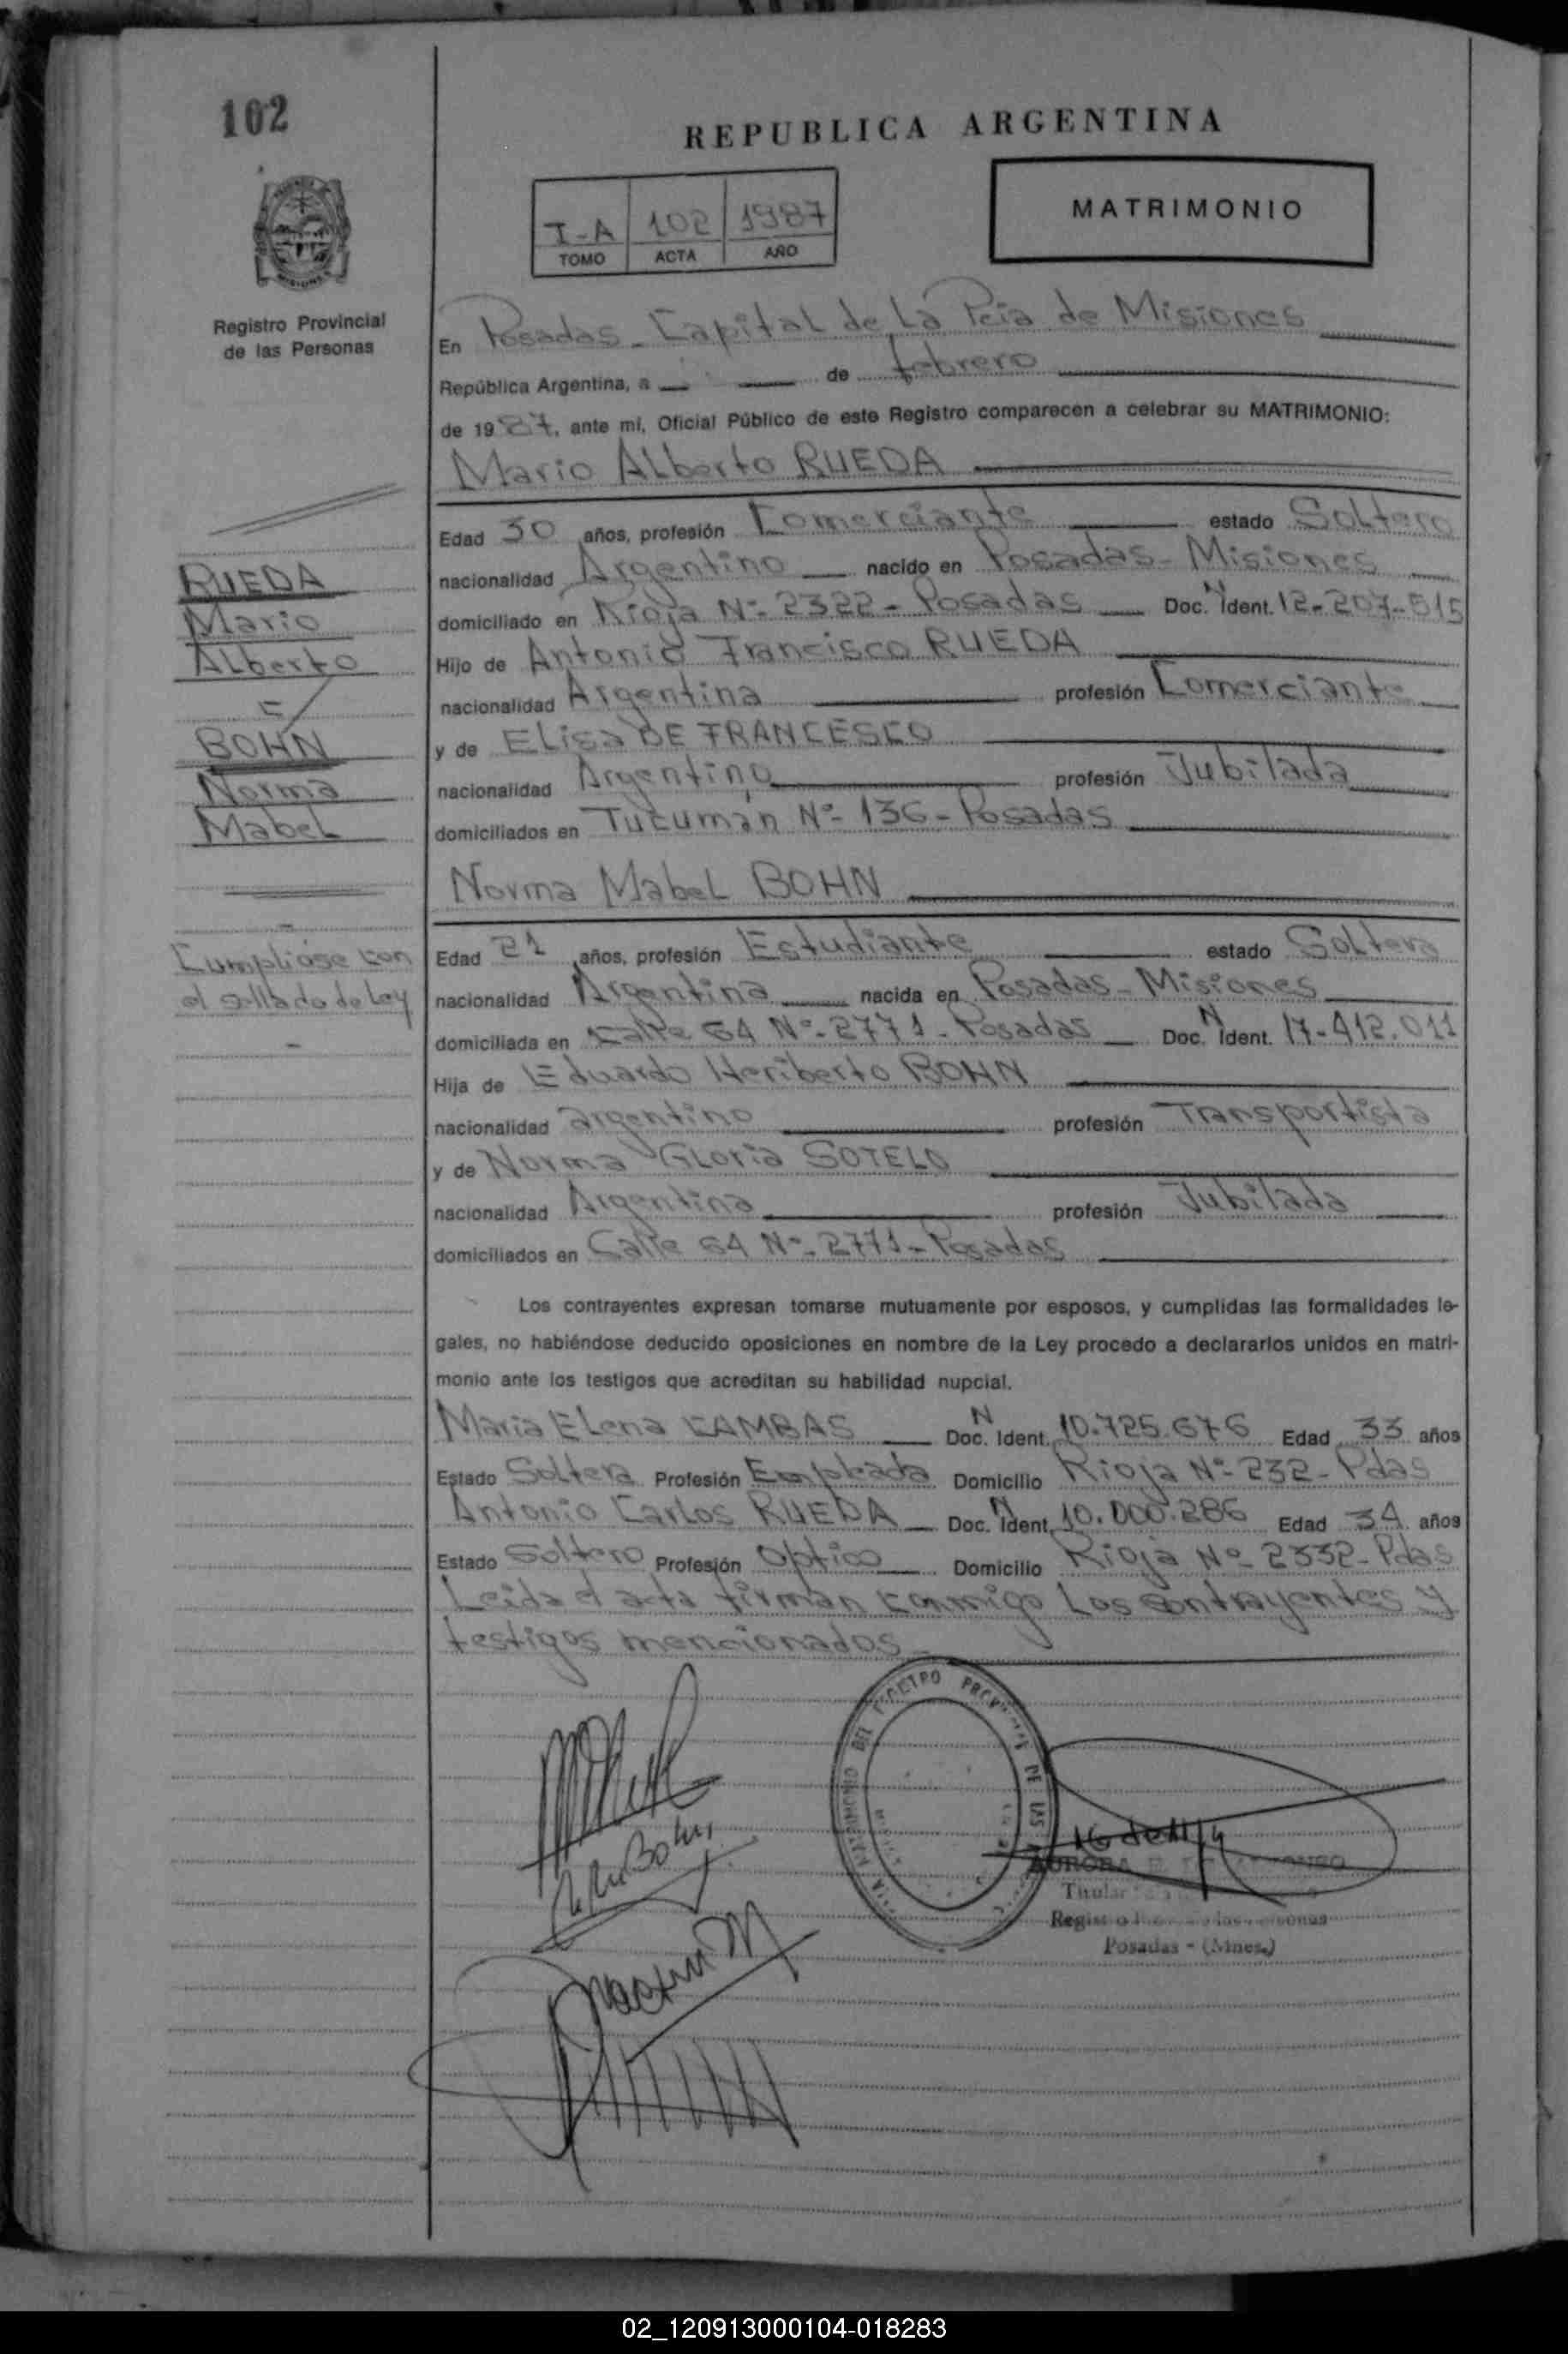 102
REPUBLICA ARGENTINA
MATRIMONIO
I-A 102 1987
TOMO ACTA AÑO
Registro Provincial
de las Personas
En Posadas - Capital de La Pcia de Misiones
República Argentina, a de febrero
de 1987, ante mí, Oficial Público de este Registro comparecen a celebrar su MATRIMONIO:
Mario Alberto RUEDA
Edad 30 años, profesión Comerciante estado Soltero
nacionalidad Argentino nacido en Posadas - Misiones
domiciliado en Rioja Nº 2322 - Posadas Doc. N Ident. 12-207-515
Hijo de Antonio Francisco RUEDA
nacionalidad Argentina profesión Comerciante
y de Elisa DE FRANCESCO
nacionalidad Argentina profesión Jubilada
domiciliados en Tucumán Nº 136 - Posadas
Norma Mabel BOHN
RUEDA
Mario
Alberto
c/
BOHN
Norma
Mabel
Cumplióse con
el sellado de Ley
Edad 21 años, profesión Estudiante estado Soltera
nacionalidad Argentina nacida en Posadas - Misiones
domiciliada en Calle 64 Nº 2771 - Posadas Doc. N Ident. 17-412.011
Hija de Eduardo Heriberto BOHN
nacionalidad argentino profesión Transportista
y de Norma Gloria SOTELO
nacionalidad Argentina profesión Jubilada
domiciliados en Calle 64 Nº 2771 - Posadas
Los contrayentes expresan tomarse mutuamente por esposos, y cumplidas las formalidades le-
gales, no habiéndose deducido oposiciones en nombre de la Ley procedo a declararlos unidos en matri-
monio ante los testigos que acreditan su habilidad nupcial.
Maria Elena CAMBAS Doc. N Ident. 10.725.676 Edad 33 años
Estado Soltera Profesión Empleada Domicilio Rioja Nº 232 - Pdas
Antonio Carlos RUEDA Doc. N Ident. 10.000.286 Edad 34 años
Estado Soltero Profesión Optico Domicilio Rioja Nº 2332 - Pdas
Leida el acta firman conmigo Los contrayentes y
testigos mencionados
DEL REGISTRO DE LAS
Bohn
AURORA
Titular
Posadas - (Mnes.)
02_120913000104-018283